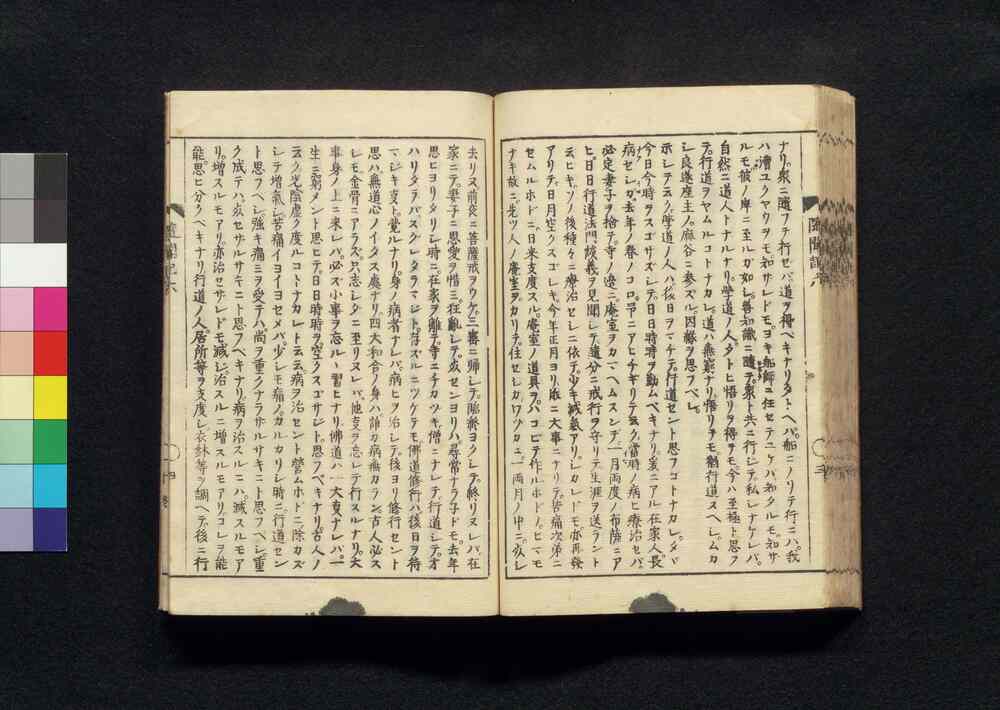 ナリ。衆ニ随フテ行セバ。道ヲ得ベキナリ。タトヘバ。船ニノリテ行ニハ。我
ハ漕ユクヤウヲモ知サレドモ。ヨキ船師ニ任セテユケバ。知タルモ。知サ
ルモ。彼ノ岸ニ至ルガ如レ。善知識ニ随テ。衆ト共ニ行シテ。私レナケレバ。
自然ニ道人トナルナリ。学道ノ人。タトヒ悟リヲ得テモ。今ハ至極ト思フ
テ。行道ヲヤムルコトナカレ。道ハ無窮ナリ。悟リテモ。猶行道スヘレ。ムカ
シ良遂座主ノ麻谷ニ参ズル。因縁ヲ思フベレ。
示レテ云ク。学道ノ人ハ。後日ヲマチテ。行道セント思フコトナカレ。タヾ
今日今時ヲスゴサズレテ。日日時時ヲ勤ムベキナリ。爰ニアル在家人。長
病セレガ。去年ノ春ノコロ。
必定妻子ヲ捨テ。寺ノ邊ニ庵室ヲカマヘムスンデ。一月両度ノ布薩ニア
ヒ。日日行道法門談義ヲ見聞レテ。随分ニ戒行ヲ守リテ。生涯ヲ送ラント
云ヒキ。ソノ後種々ニ療治セレニ依テ。少キ減氣アリレカレドモ。亦再發
アリテ。日月空クスゴレキ。今年正月ヨリ。俄ニ大事ニナリテ。苦痛次第ニ
セムルホドニ。日来支度スル。庵室ノ道具ヲハコビテ。作ルホドノヒマモ
ナキ故ニ。先ツ人ノ庵室ヲカリテ。住セレガ。ワヅカニ一両月ノ中ニ。死レ
去リヌ。前夜ニ菩薩戒ヲウケ。三寳ニ帰レテ。臨終ヨクレテ。終リヌレバ。在
家ニテ。妻子ニ恩愛ヲ惜ミ。狂亂レテ。死センヨリハ。尋常ナラ子ドモ。去年
思ヒヨリタリレ時ニ。在家ヲ離テ。寺ニチカヅキ。僧ニナレテ。行道シテ。
ハリタラバ。スグレタラマレト。存スルニツケテモ。佛道修行ハ。後日ヲ待
マジキ支ト。覚ルナリ。身ノ病者ナレバ。病ヒヲ治レテ。後ヨリ修行セント
思ハ。無道心ノイタス處ナリ。四大和合ノ身ハ。誰カ病無カラン。古人必ス
レモ金骨ニアラズ。只志レダニ至リヌレバ。他支ヲ忘レテ行スルナリ。大
事身ノ上ニ来レバ。必ズ小事ヲ忘ルヽ習ヒナリ。佛道ハ一大事ナレバ。一
生ニ窮メント思ヒテ。日日時時ヲ空クスゴサレト。思フベキナリ。古人ノ
云ク。光陰虚ク度ルコトナカレト云云。病ヲ治セント營ムホドニ。除カズ
レテ增氣レ。苦痛イヨイヨセメバ。少レモ痛ノカルカリレ時ニ。行道セン
ト思フヘレ。強キ痛ミヲ受テハ。尚ヲ重クナラサルサキニト思フヘレ。重
ク成テハ。死セサルサキニト思フヘキナリ。病ヲ治スルニハ。減スルモア
リ。増スルモアリ。亦治セサレドモ。減シ。治スルニ増スルモアリ。コレヲ能
能思ヒ分クヘキナリ。行道ノ人。居所等ヲ支度レ。衣鉢等ヲ調ヘテ後ニ。行